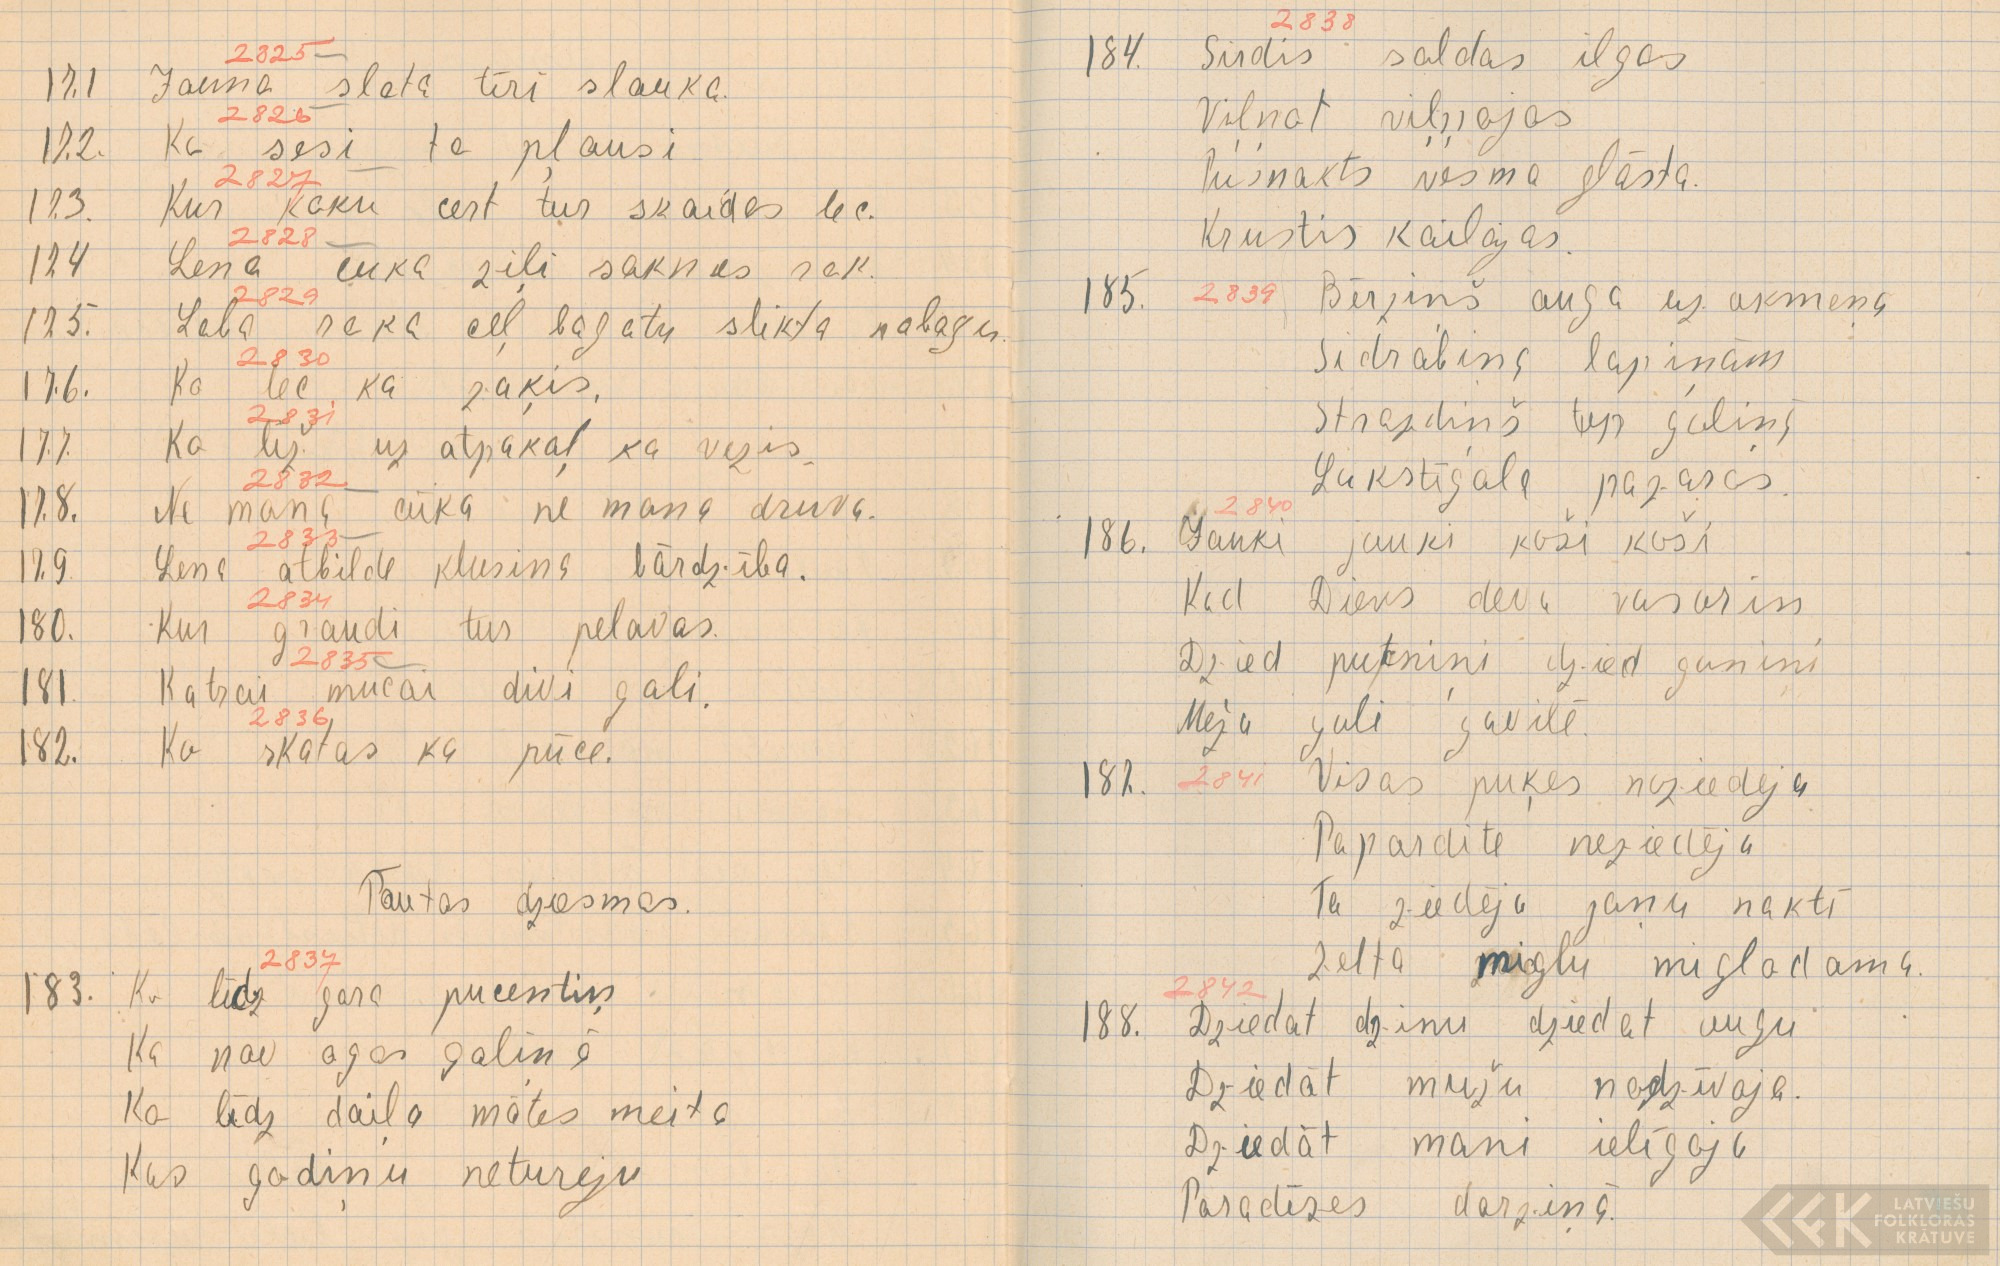 2825
171 Jauna slota tīri slauka.
2826
172. Ko sēsi to pļausi
2827
173. Kur koku cērt tur skaidas lec.
2828
174 Lēna cūka zili saknes rok.
2829
175. Laba roka ceļ bagātu slikta nabagu.
2830
176. Ko lec kā zaķis.
2831
177. Ko līz uz atpakaļ kā vēzis.
2832
178. Ne mana cūka ne mana druva.
2833
179 Lēna atbilde klusina bārdzība.
2834
180. Kur graudi tur pelavas.
2835
181. Katrai mucai divi gali.
2836
182. Ko skatas kā pūce.
Tautas dziesmas.
2837
183. Ko līdz gara pucentiņ
Ka nav ogas galiņā
Ko līdz daiļa mātes meita
Kas godiņu neturēju
2838
184. Sirdis saldas ilgas
Vilnot viļņojas
Pusnakts vēsma glāsta.
Krustis kailojas.
185. 2839 Bērziņš auga uz akmeņa
Sidrabiņa lapiņām
Strazdiņš tup galiņā
Lakstīgala pazarās.
2840
186. Jauki jauki koši koši
Kad Dievs deva vasariņ
Dzied putniņi dzied ganiņi
Meža gali gavilē.
187. 2841 Visas puķes noziedēja
Papardīte neziedēja
Ta ziedēja jaņu naktī
Zelta miglu miglodama.
2842
188. Dziedat dzimu dziedat augu
Dziedāt mužu nodzīvoja.
Dziedāt mani ielīgoja
Paradīzes dārziņā.
LATVIEŠU
FOLKLORAS
KRĀTUVE